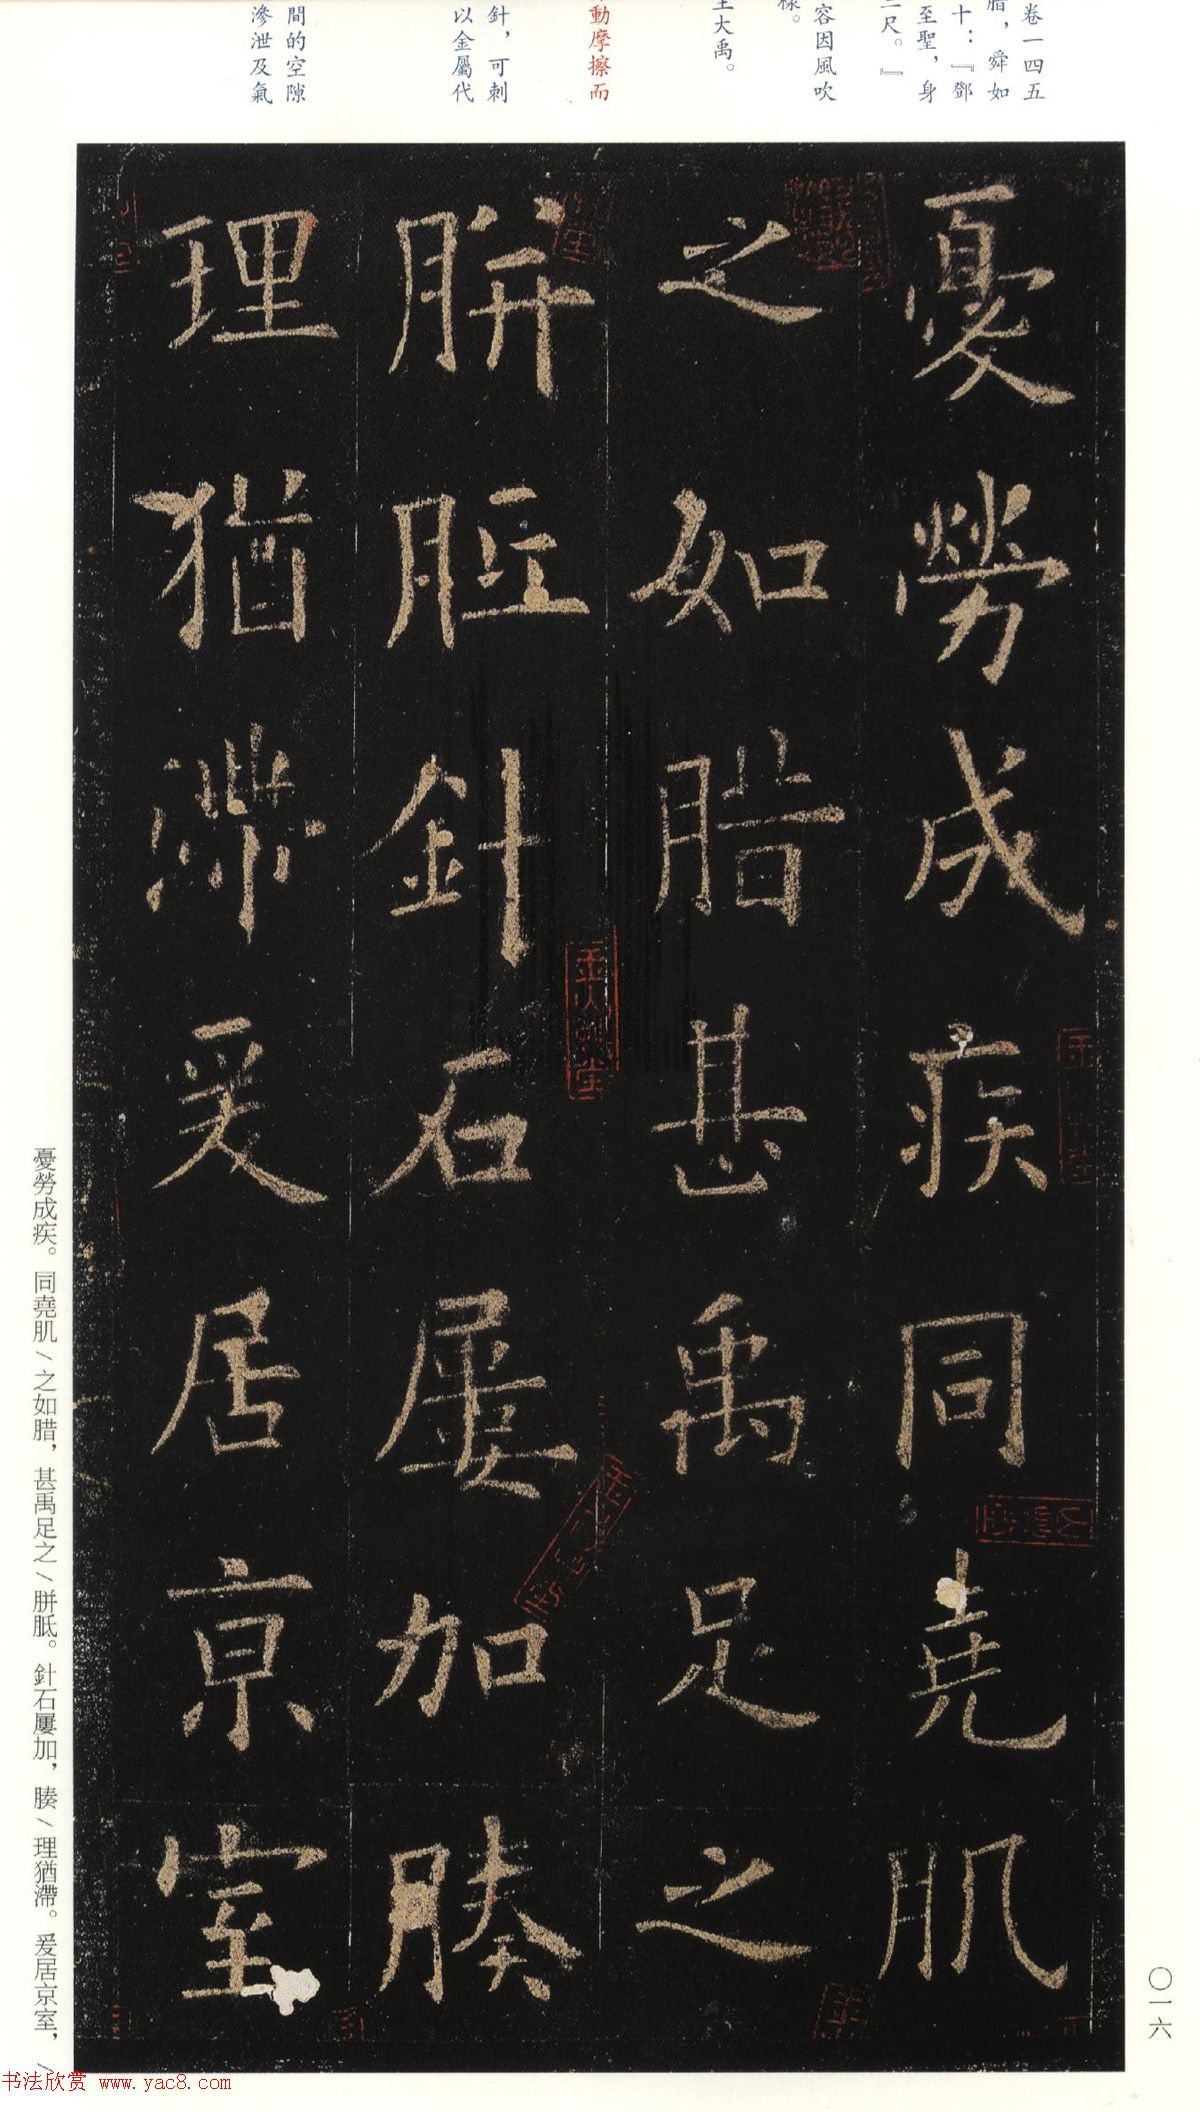 卷一四五
腊，舜如
十：『鄧
至聖，身
二尺。』
容因風吹
樣。
王大禹。
動摩擦而
針，可刺
以金屬代
間的空隙
滲泄及氣
憂勞成疾同堯肌
之如腊甚禹足之
胼胝針石屢加腠
理猶滯爰居京室
憂勞成疾。同堯肌\之如腊，甚禹足之\胼胝。針石屢加，腠\理猶滯。爰居京室，\
〇一六
书法欣赏 www.yac8.com